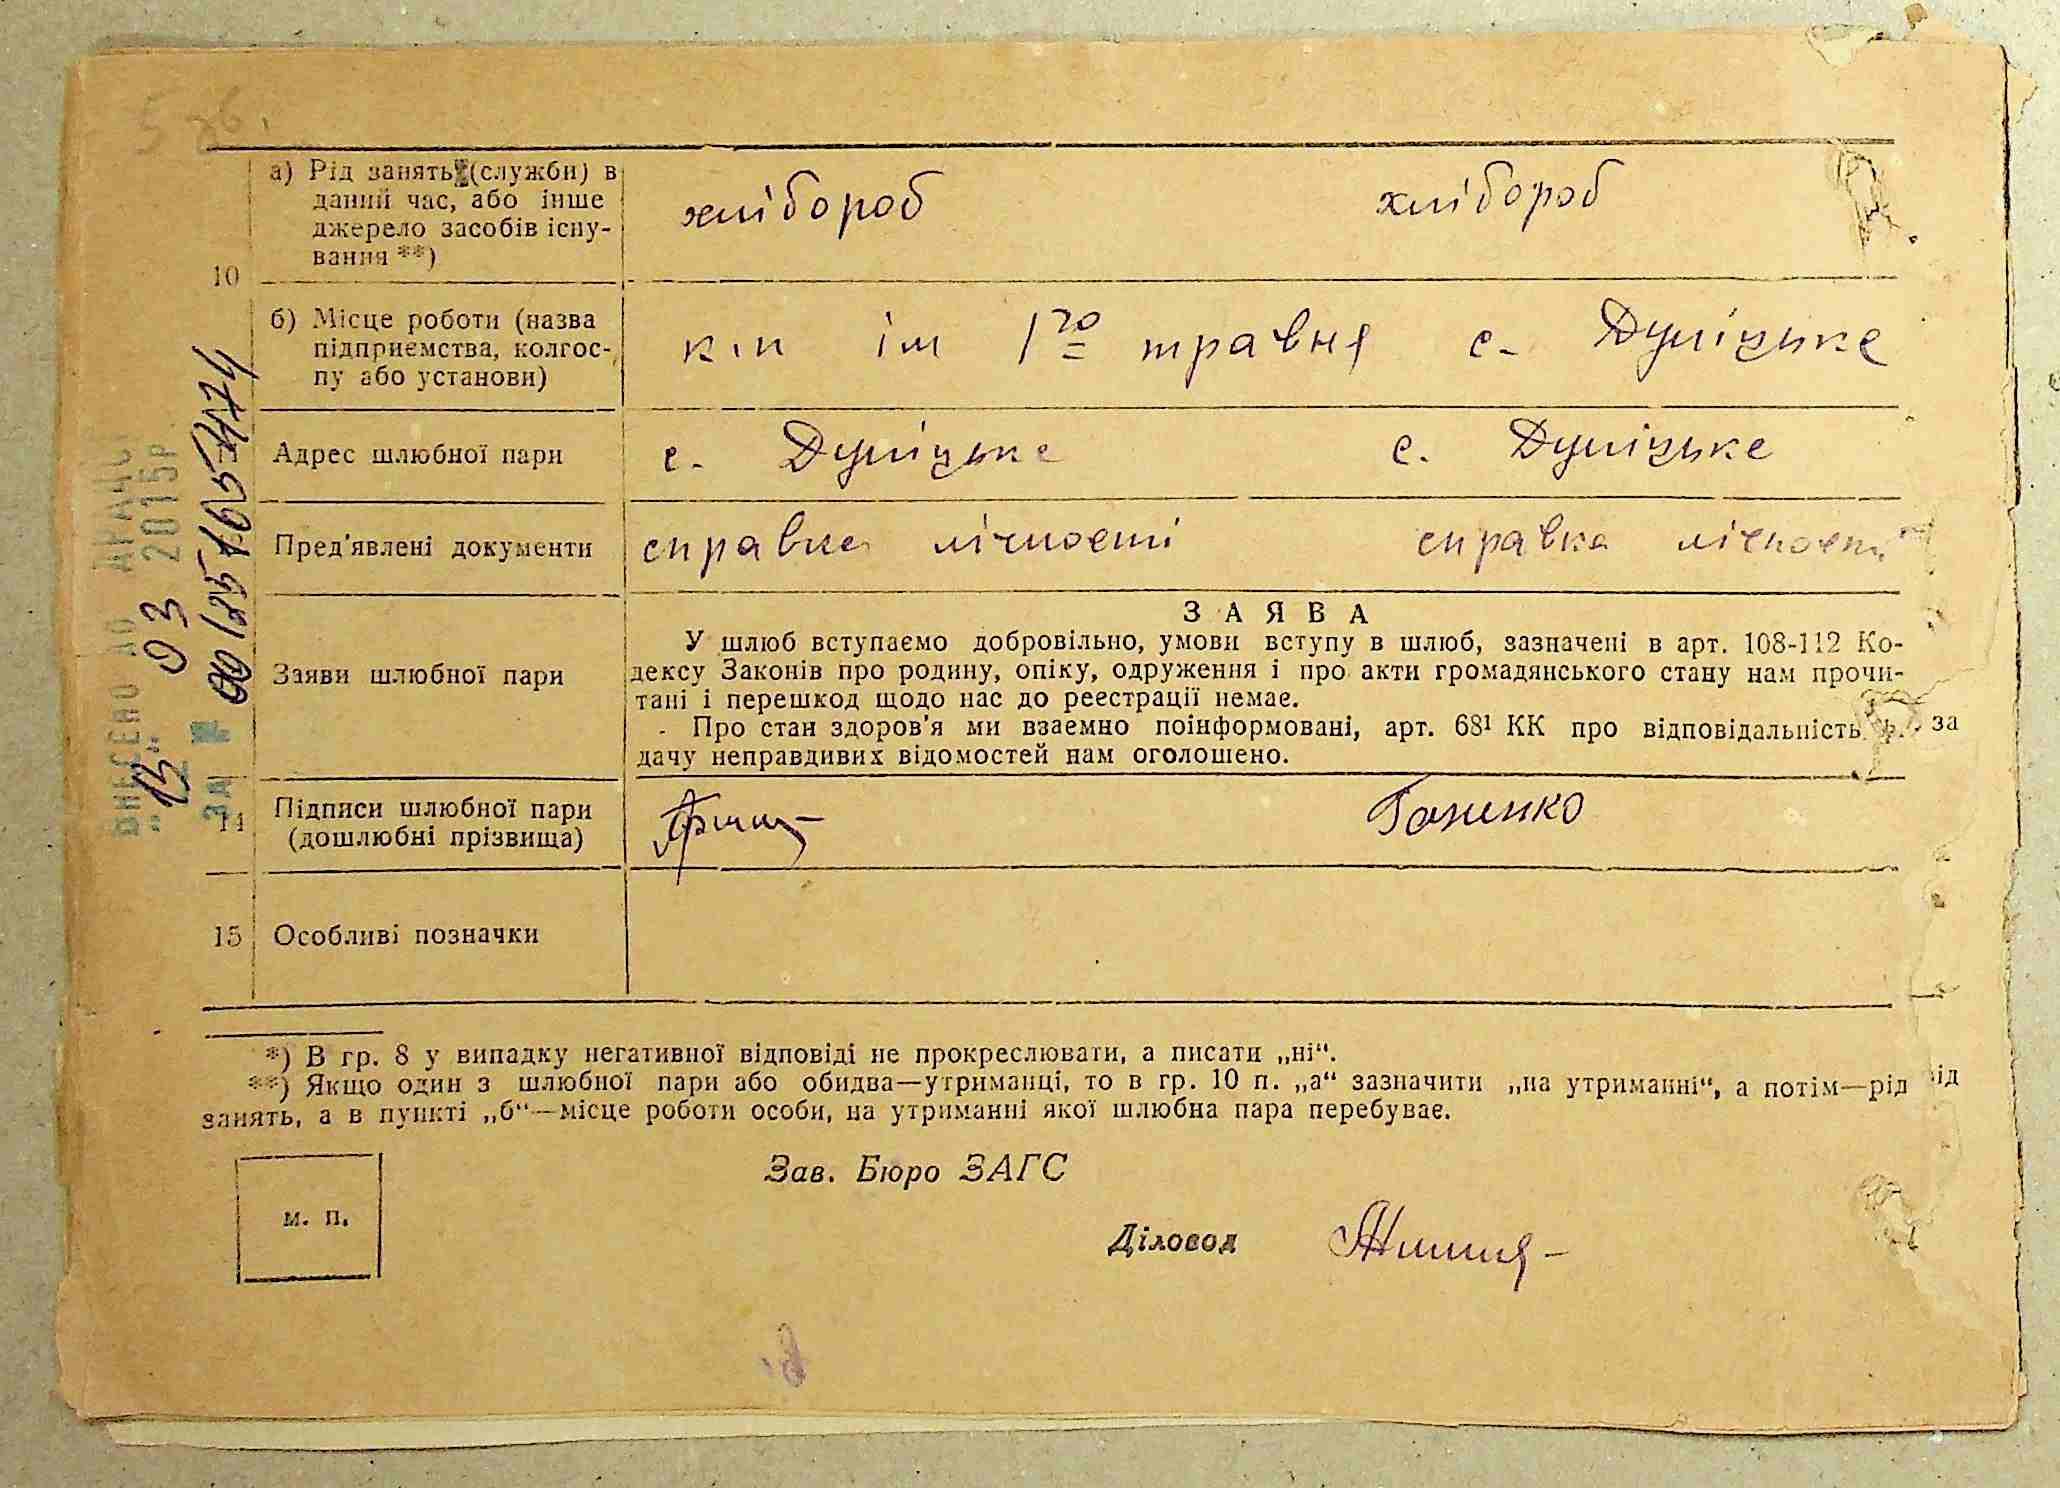 5 зв.
а) Рід занять (служби) в
даний час, або інше
джерело засобів існу-
вання **)
хлібороб хлібороб
10
б) Місце роботи (назва
підприємства, колгос-
пу або установи)
к.п ім 1го травня с. Дуліцьке
Адрес шлюбної пари
с. Дуліцьке с. Дуліцьке
Пред'явлені документи
справка лічності справка лічності
Заяви шлюбної пари
ЗАЯВА
У шлюб вступаємо добровільно, умови вступу в шлюб, зазначені в арт. 108-112 Ко-
дексу Законів про родину, опіку, одруження і про акти громадянського стану нам прочи-
тані і перешкод щодо нас до реєстрації немає.
- Про стан здоров'я ми взаємно поінформовані, арт. 68¹ КК про відповідальність за
дачу неправдивих відомостей нам оголошено.
14
Підписи шлюбної пари
(дошлюбні прізвища)
15 Особливі позначки
*) В гр. 8 у випадку негативної відповіді не прокреслювати, а писати „ні“.
**) Якщо один з шлюбної пари або обидва—утриманці, то в гр. 10 п. „а“ зазначити „на утриманні“, а потім—рід
занять, а в пункті „б“—місце роботи особи, на утриманні якої шлюбна пара перебуває.
Зав. Бюро ЗАГС
м. п.
Діловод
ВНЕСЕНО ДО ДРАЦС
„13“ 03 2015р.
ЗА №